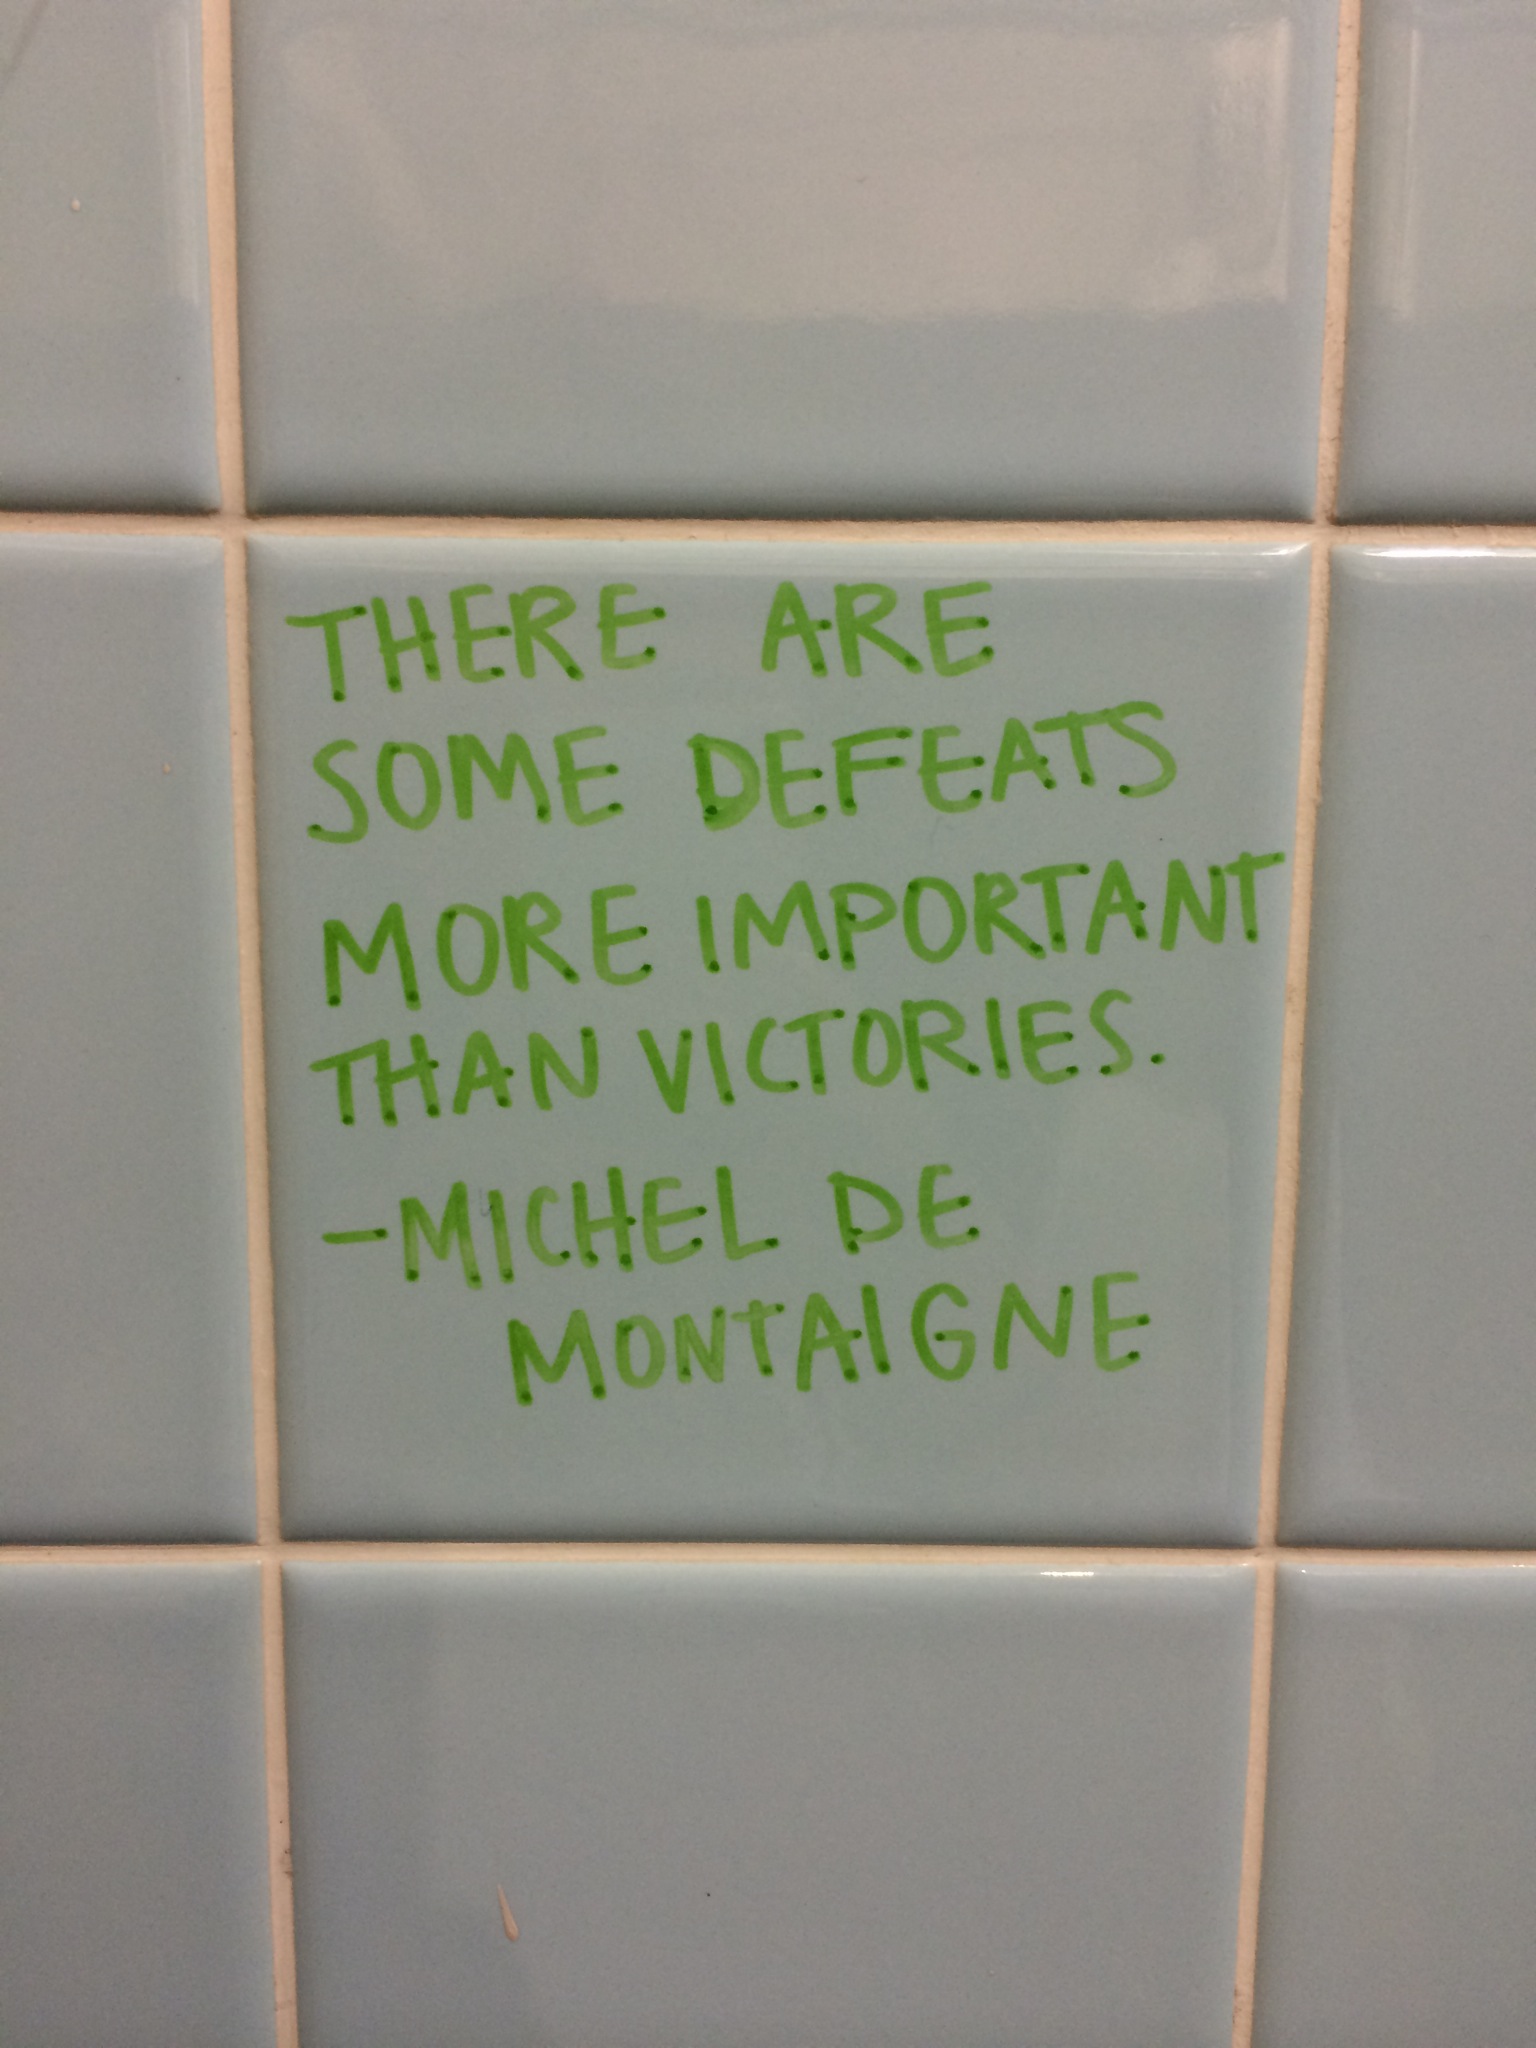 THERE ARE
SOME DEFEATS
MORE IMPORTANT
THAN VICTORIES.
-MICHEL DE
MONTAIGNE